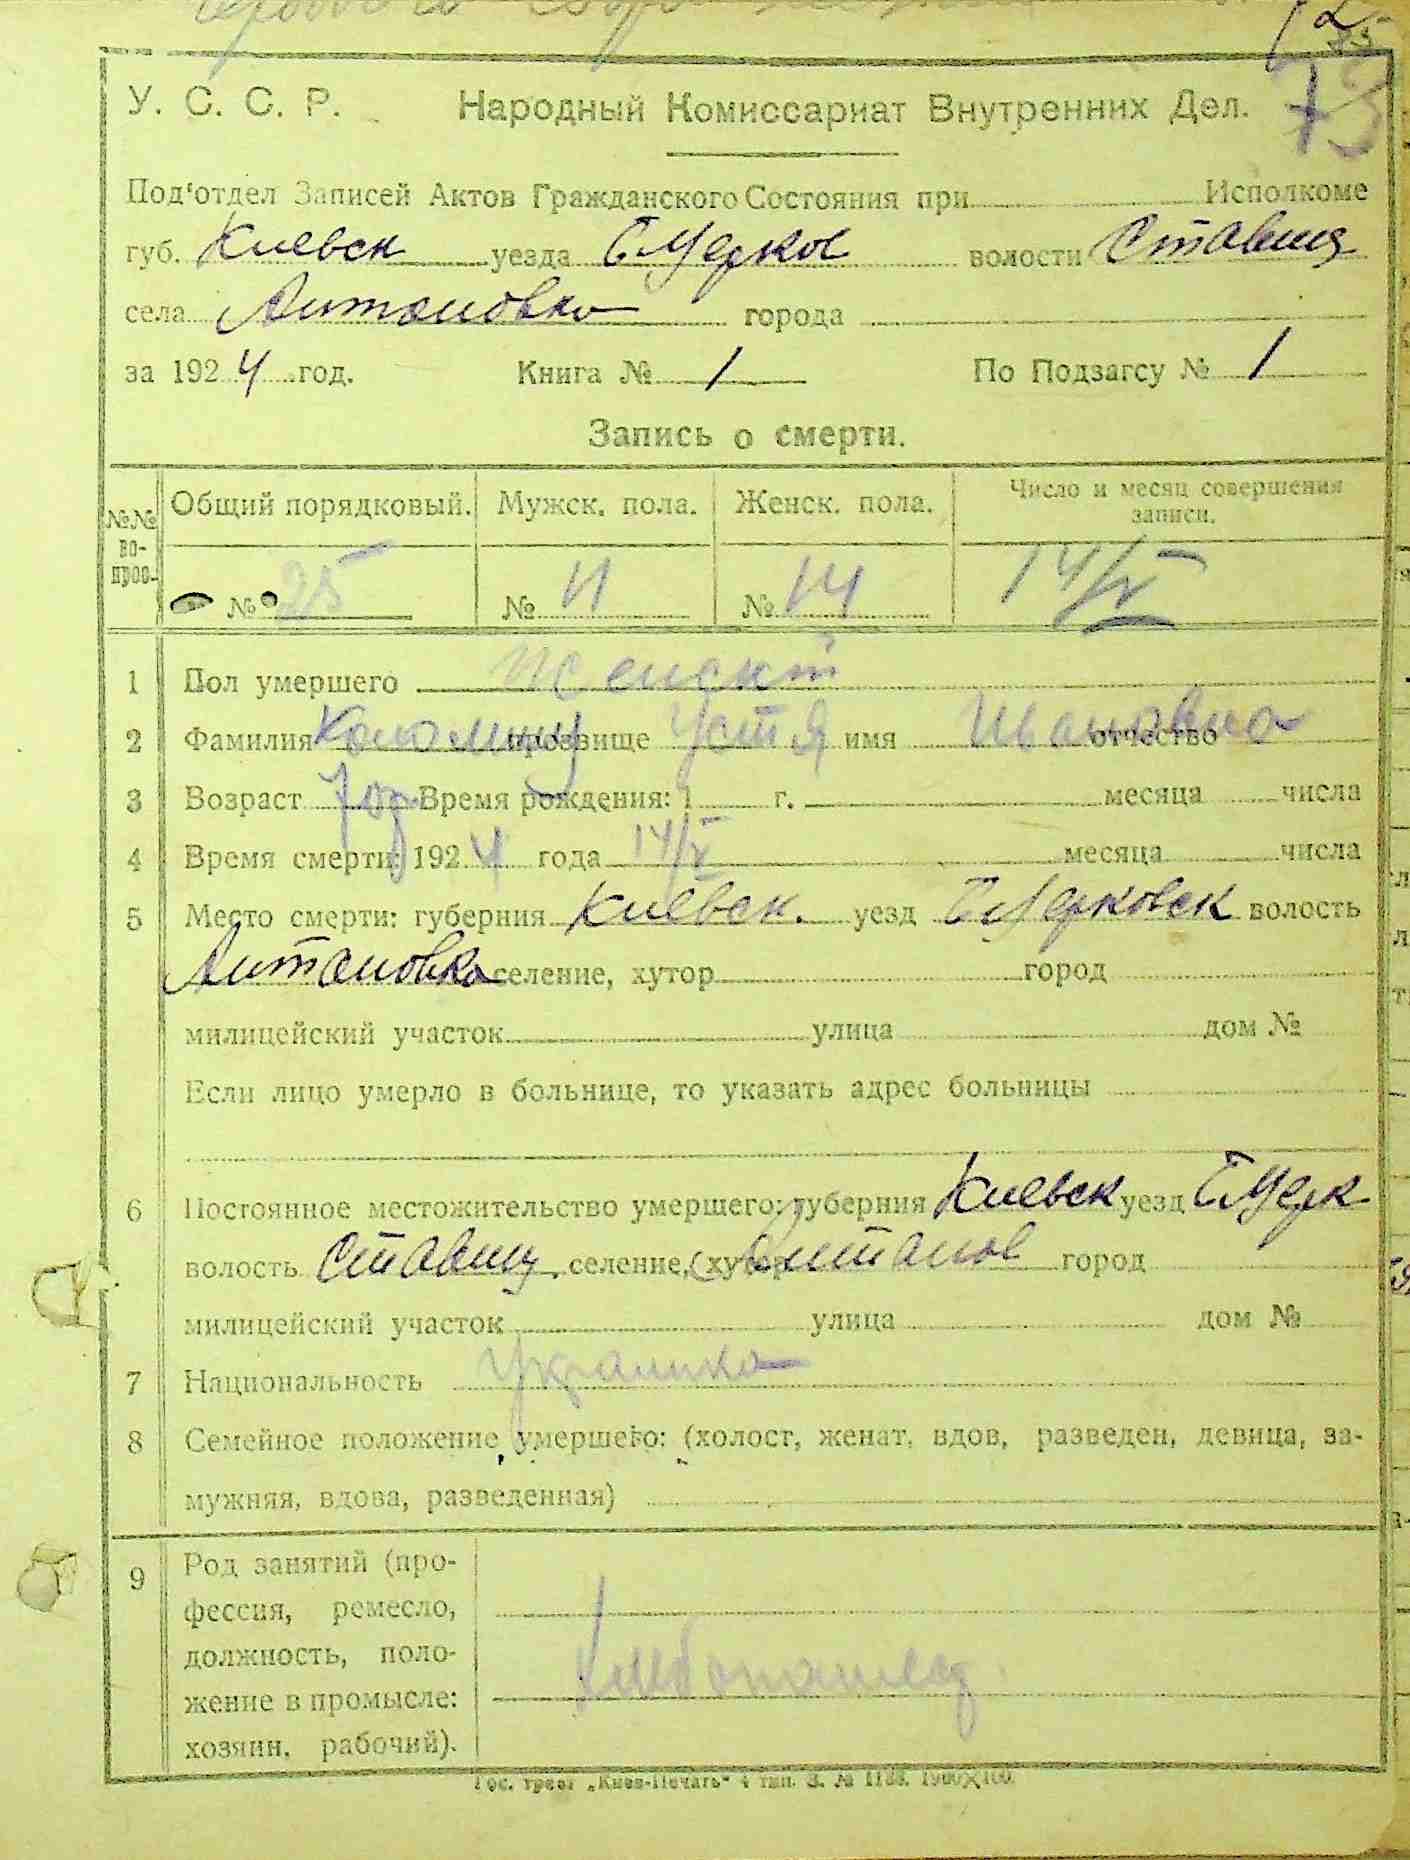 73
У. С. С. Р. Народный Комиссариат Внутренних Дел.
Под'отдел Записей Актов Гражданского Состояния при Исполкоме
губ. Киевск уезда Б Церков волости Ставищ
села Антоновка города
за 1924 год. Книга № 1 По Подзагсу № 1
Запись о смерти.
№№ во-прос. Общий порядковый. Мужск. пола. Женск. пола. Число и месяц совершения записи.
№ 25 № 11 № 14 14/V
1 Пол умершего Женский
2 Фамилия Коломиец прозвище Устя имя Ивановна отчество
3 Возраст 7 Время рождения: 1 г. месяца числа
4 Время смерти: 1924 года 14/V месяца числа
5 Место смерти: губерния Киевск. уезд Б Церковск волость
Антоновка селение, хутор город
милицейский участок улица дом №
Если лицо умерло в больнице, то указать адрес больницы
6 Постоянное местожительство умершего: губерния Киевск уезд Б Церк
волость Ставищ. селение, (хутор Антонов город
милицейский участок улица дом №
7 Национальность Украинка
8 Семейное положение умершего: (холост, женат, вдов, разведен, девица, за-
мужняя, вдова, разведенная)
9 Род занятий (про-
фессия, ремесло,
должность, поло-
жение в промысле:
хозяин, рабочий).
Хлебопашец
Гос. трест „Киев-Печать" 4 тип. З. № 1188. 1900×100.